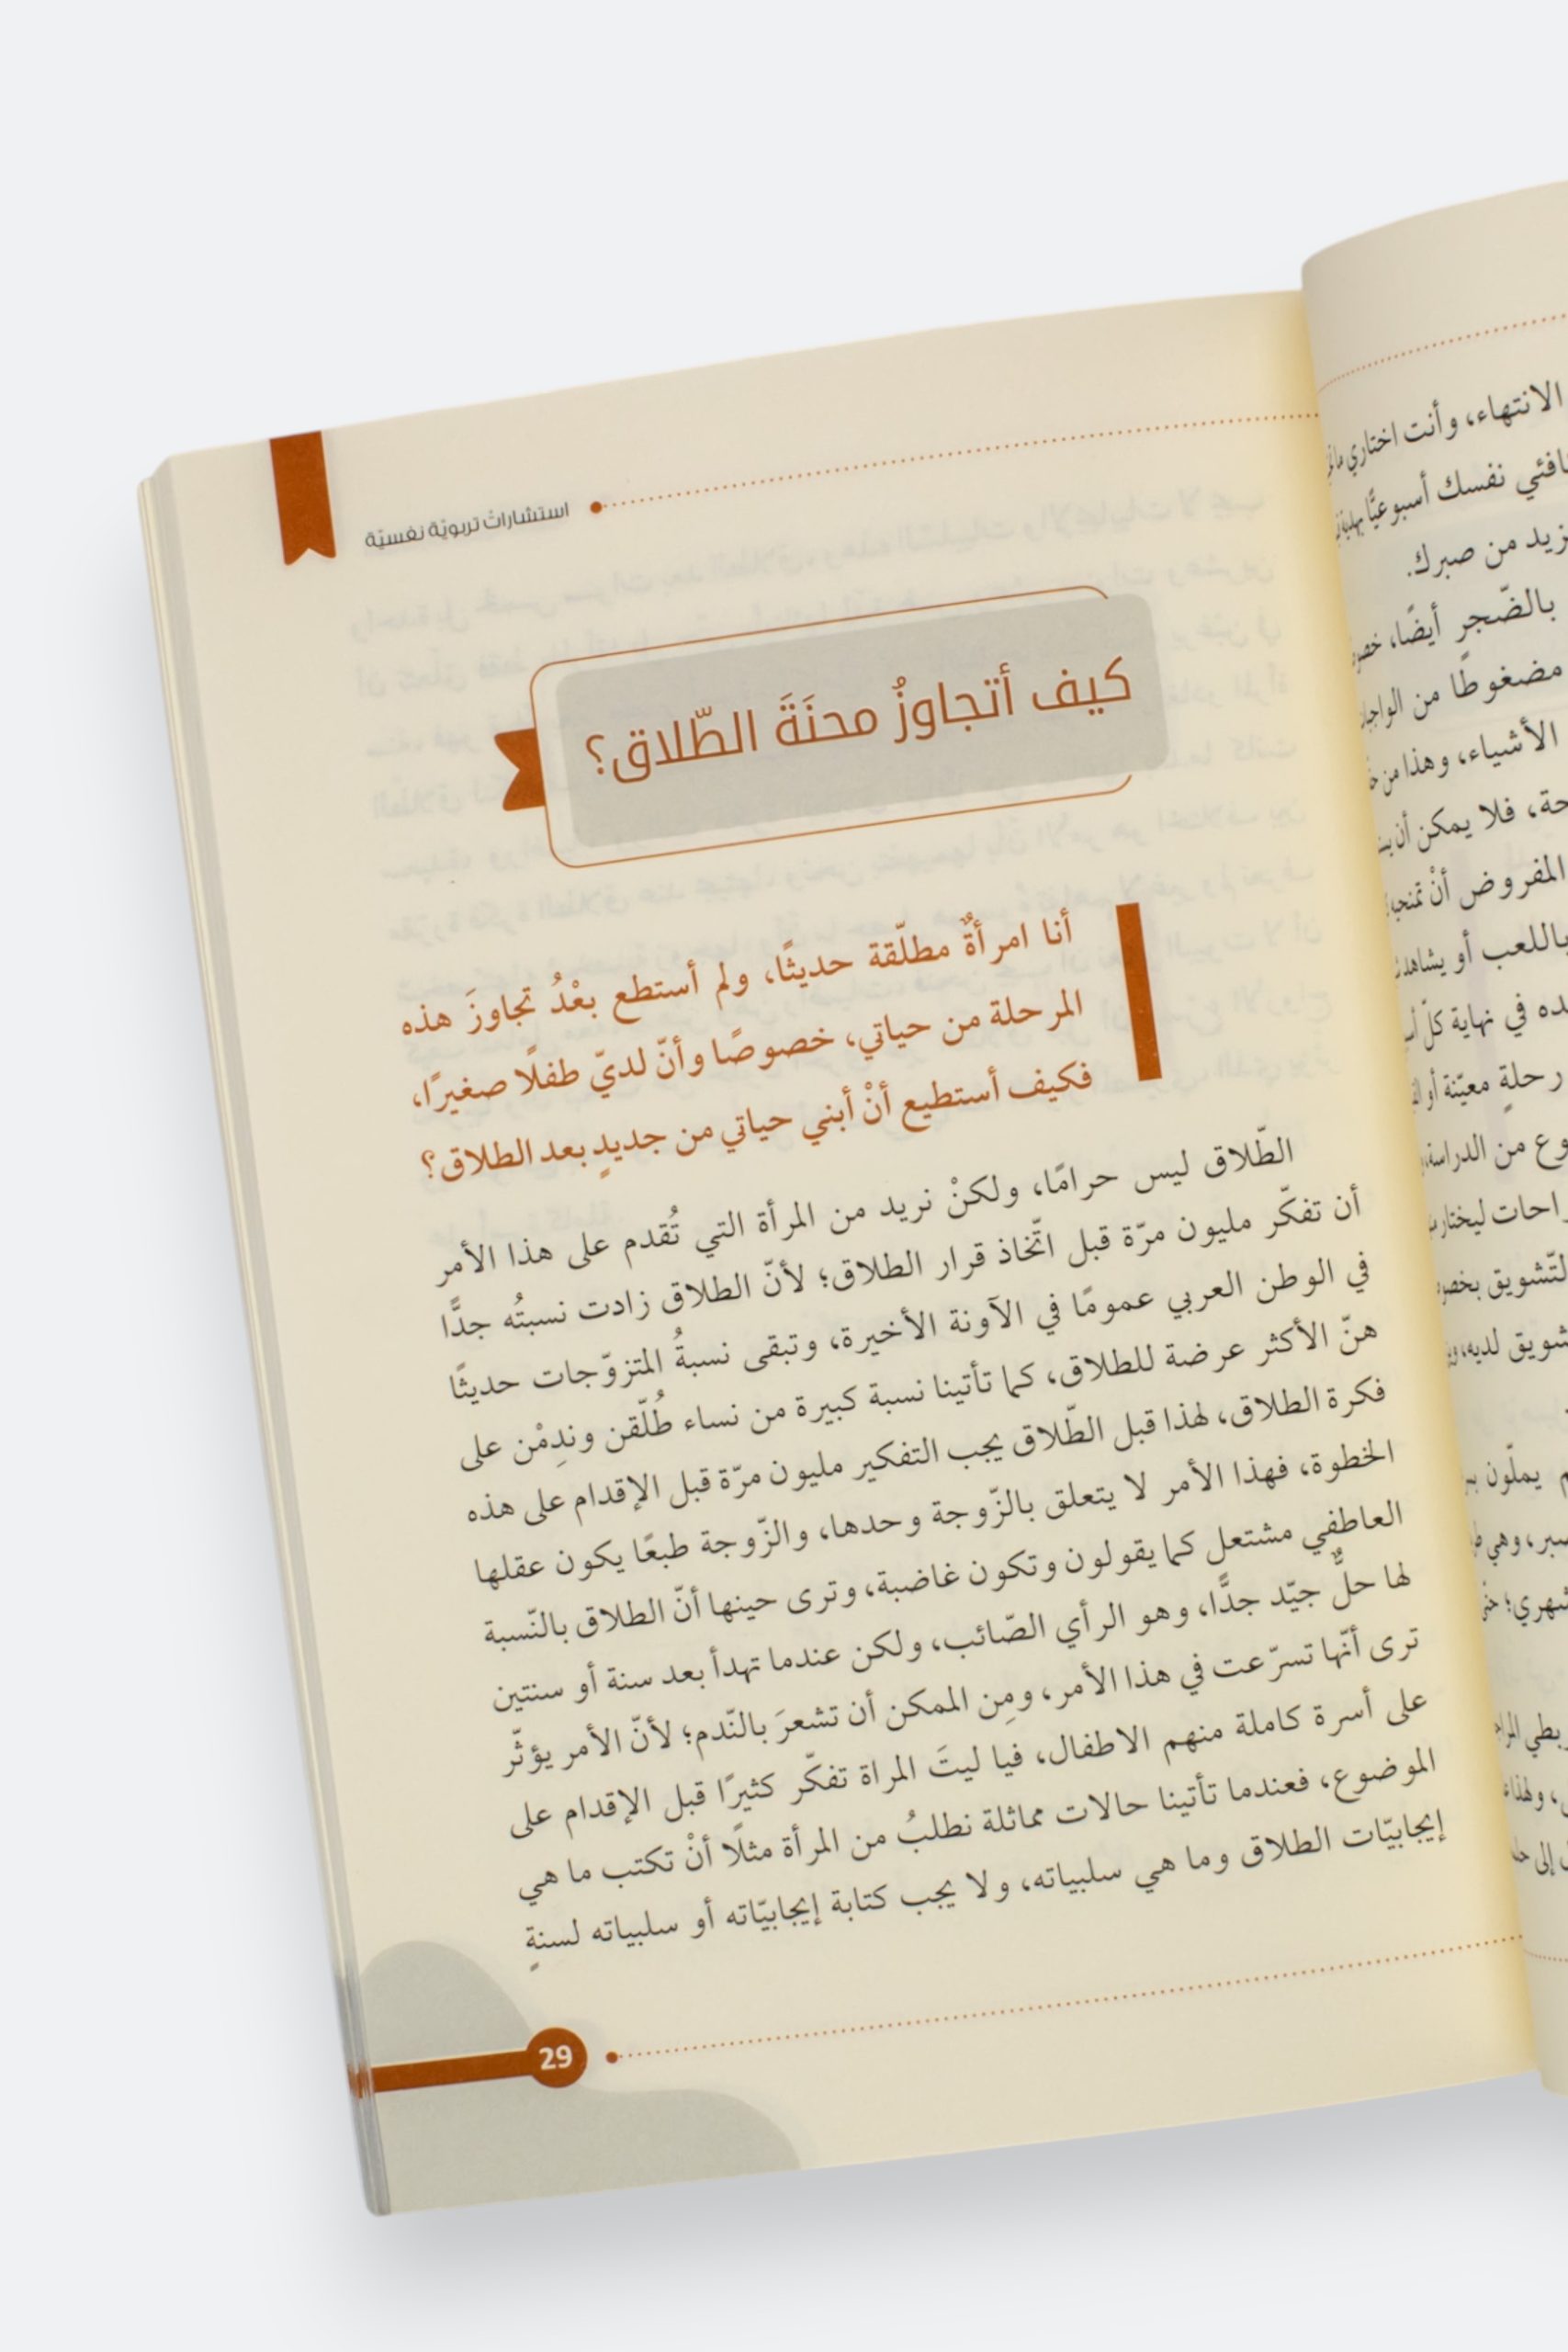 الانتهاء، وأنت اختاري
نفسك أسبوعيًّا
من صبرك.
بالضّجرِ أيضًا،
مضغوطًا من
الأشياء، وهذا من
فلا يمكن أن
المفروض أنْ
باللعب أو
في نهاية كلّ
رحلةٍ معيّنة أو
من الدراسة
التّشويق
لديه،
يملّون
وهي
إلى
استشاراتٌ تربويّة نفسيّة
كيف أتجاوزُ محنَةَ الطّلاق؟
أنا امرأةٌ مطلّقة حديثًا، ولم أستطع بعْدُ تجاوزَ هذه
المرحلة من حياتي، خصوصًا وأنّ لديّ طفلًا صغيرًا،
فكيف أستطيع أنْ أبني حياتي من جديدٍ بعد الطلاق؟
الطّلاق ليس حرامًا، ولكنْ نريد من المرأة التي تُقدم على هذا الأمر
أن تفكّر مليون مرّة قبل اتّخاذ قرار الطلاق؛ لأنّ الطلاق زادت نسبتُه جدًّا
في الوطن العربي عمومًا في الآونة الأخيرة، وتبقى نسبةُ المتزوّجات حديثًا
هنّ الأكثر عرضة للطلاق، كما تأتينا نسبة كبيرة من نساء طُلّقن وندِمْن على
فكرة الطلاق، لهذا قبل الطّلاق يجب التفكير مليون مرّة قبل الإقدام على هذه
الخطوة، فهذا الأمر لا يتعلق بالزّوجة وحدها، والزّوجة طبعًا يكون عقلها
العاطفي مشتعل كما يقولون وتكون غاضبة، وترى حينها أنّ الطلاق بالنّسبة
لها حلٌّ جيّد جدًّا، وهو الرأي الصّائب، ولكن عندما تهدأ بعد سنة أو سنتين
ترى أنّها تسرّعت في هذا الأمر، ومِن الممكن أن تشعرَ بالنّدم؛ لأنّ الأمر يؤثّر
على أسرة كاملة منهم الاطفال، فيا ليتَ المراة تفكّر كثيرًا قبل الإقدام على
الموضوع، فعندما تأتينا حالات مماثلة نطلبُ من المرأة مثلًا أنْ تكتب ما هي
إيجابيّات الطلاق وما هي سلبياته، ولا يجب كتابة إيجابيّاته أو سلبياته لسنةٍ
29